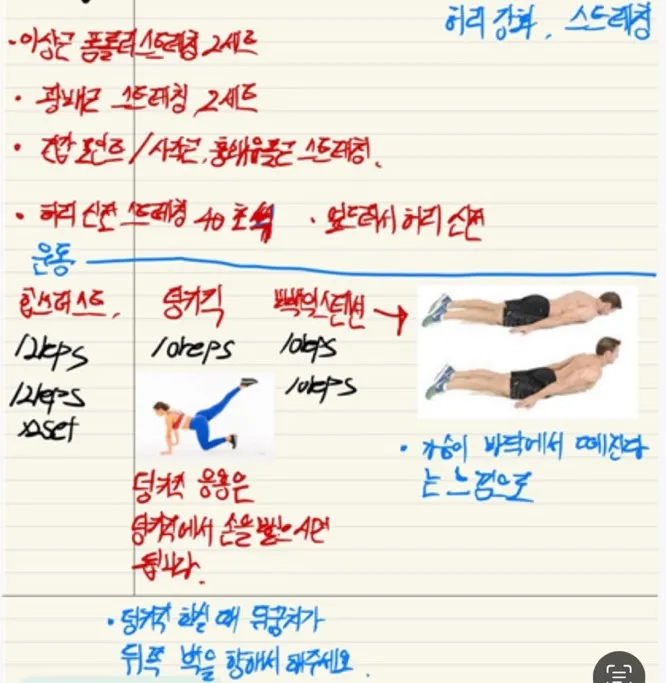 허리 강화, 스트레칭
· 이상근 폼롤러 스트레칭 2세트
· 광배근 스트레칭 2세트
· 견갑 포인트 / 사각근, 흉쇄유돌근 스트레칭.
· 허리 신전 스트레칭 40초씩 · 엎드려서 허리 신전
운동
힙쓰러스트, 덩키킥 빽익스텐션 →
12reps 10reps 10reps
12reps 10reps
x2set
· 가슴이 바닥에서 떼진다
는 느낌으로
덩키킥 응용은
덩키킥에서 손을 뻗으시면
됩니다.
· 덩키킥 하실 때 뒤꿈치가
뒤쪽 벽을 향해서 해주세요.